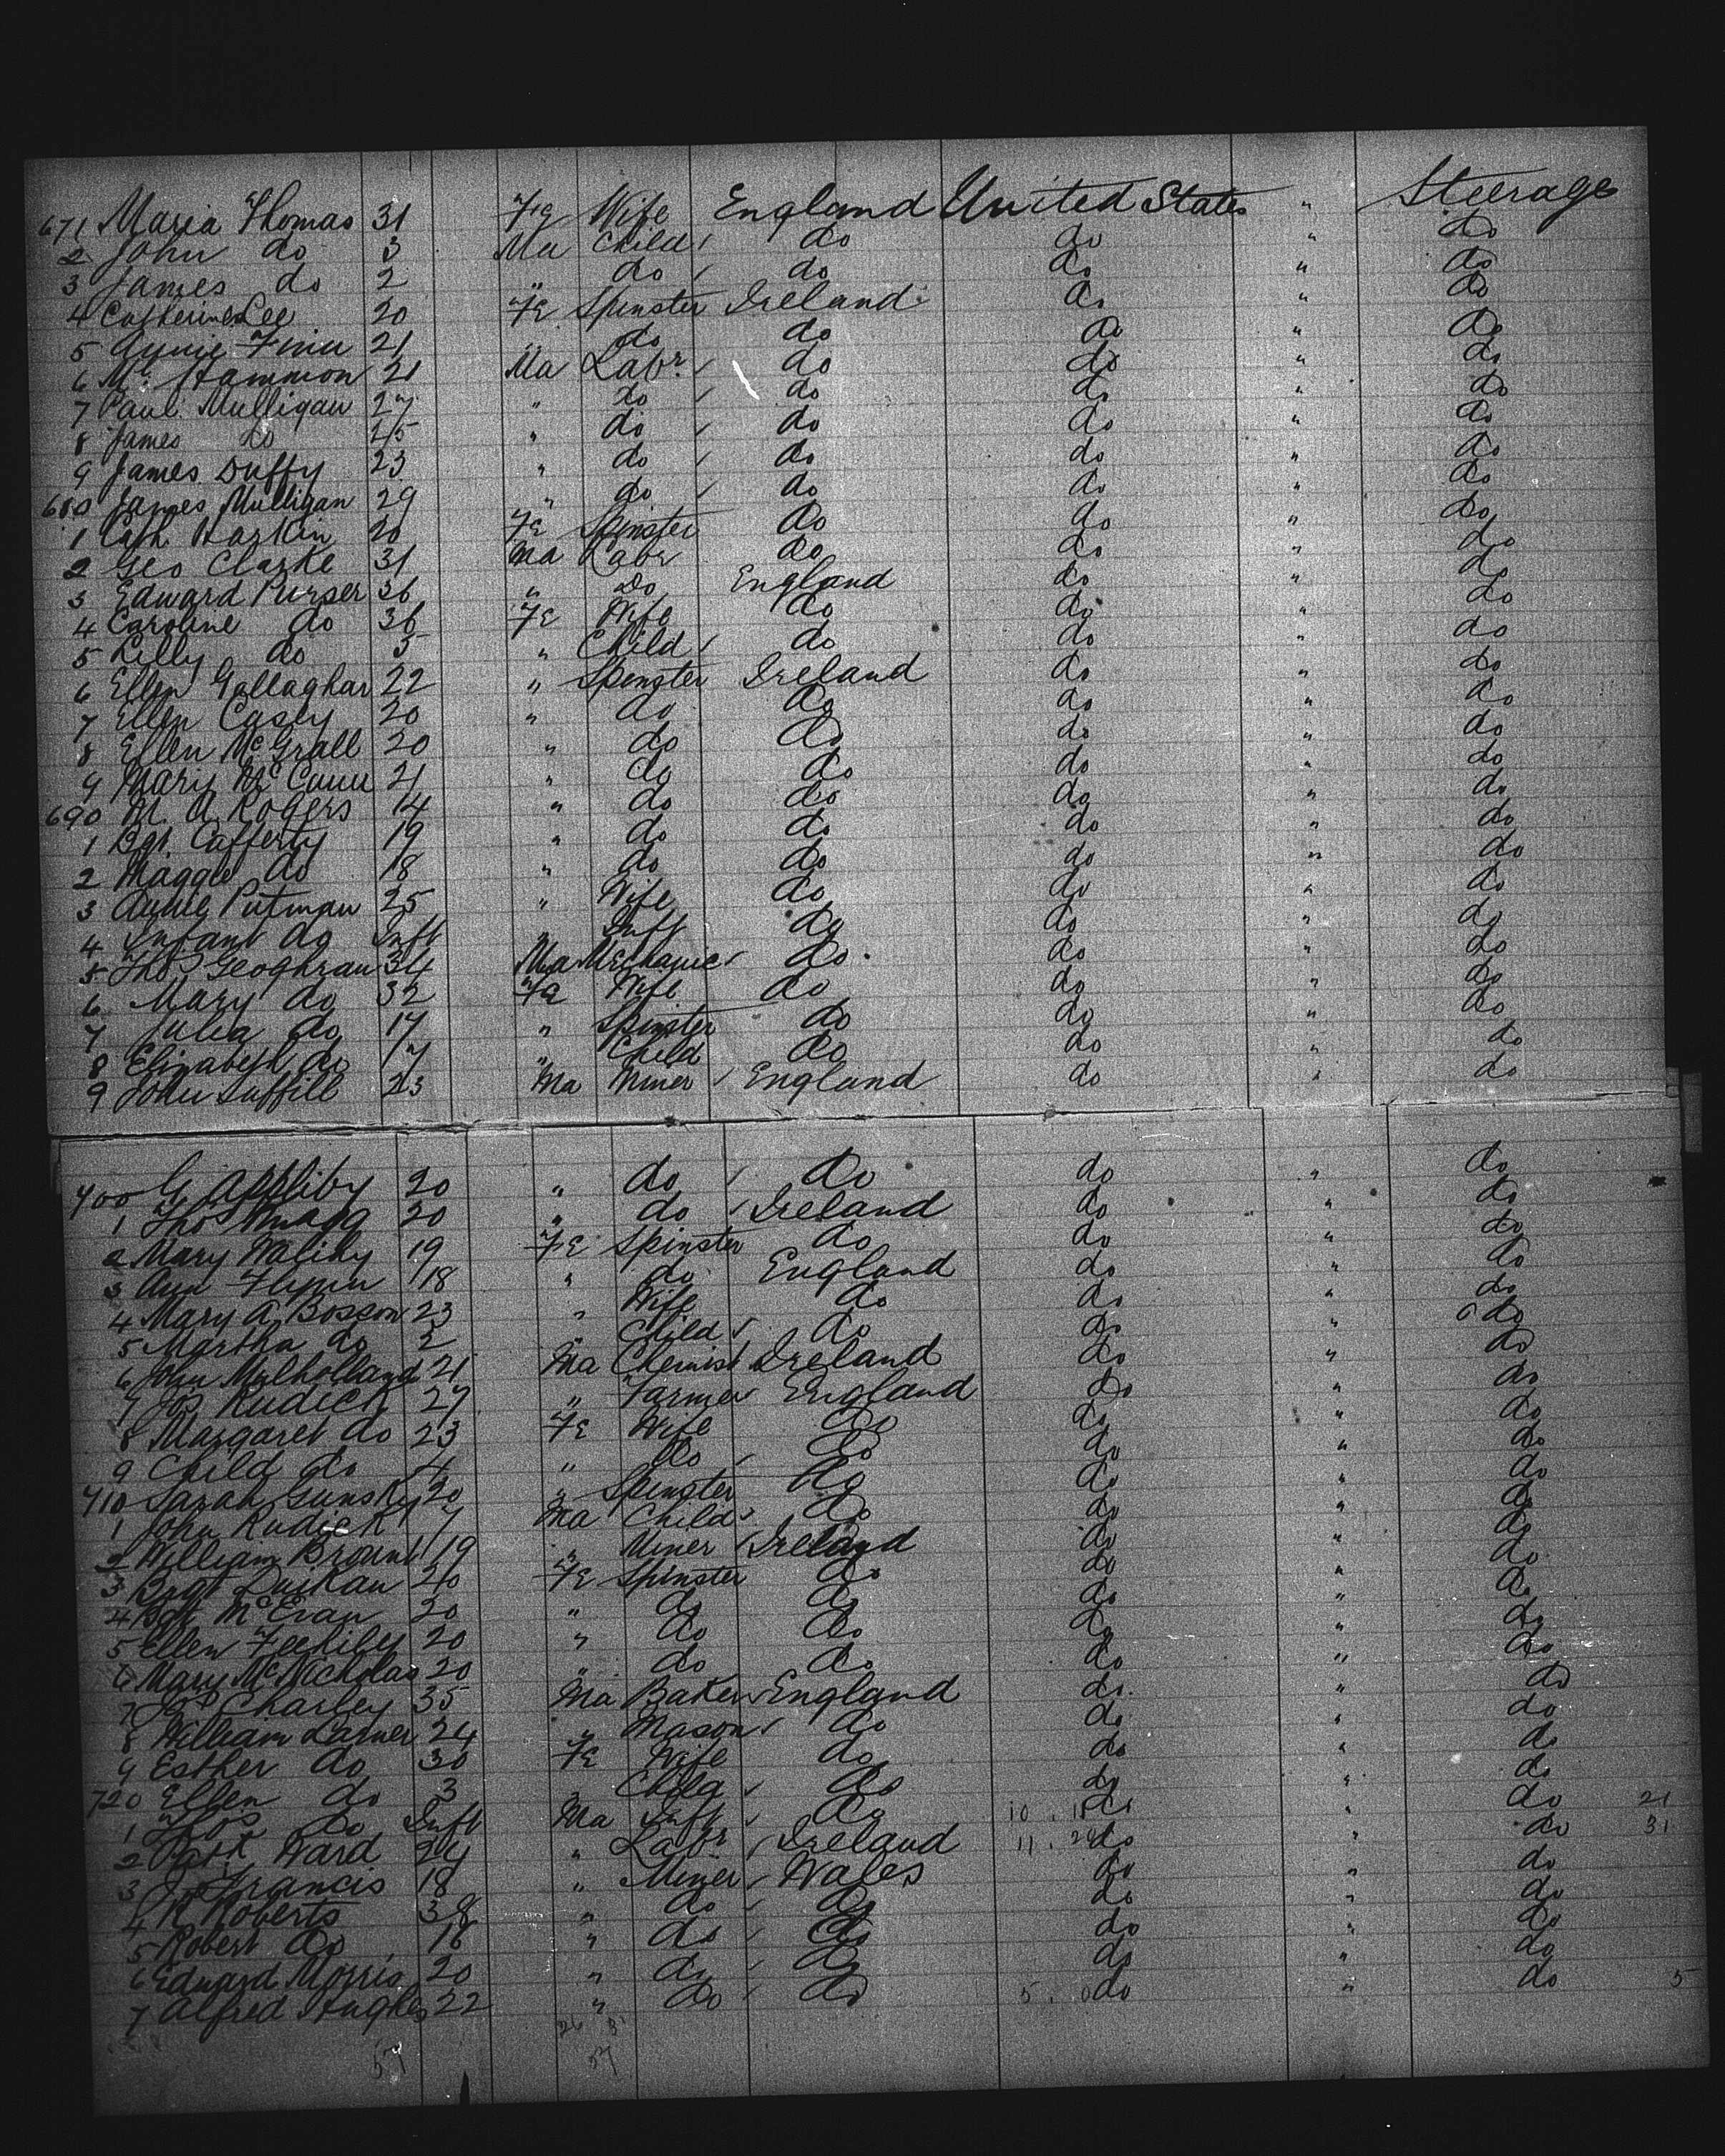 671 Maria Thomas 31 Fe Wife England United States " Steerage
2 John do 3 Ma Child do do " do
3 James do 2 " do do do " do
4 Catherine Lee 20 Fe Spinster Ireland do " do
5 Annie Finn 21 " do do do " do
6 Mc Hammon 21 Ma Labr do do " do
7 Paul Mulligan 27 " do do do " do
8 James do 25 " do do do " do
9 James Duffy 23 " do do do " do
680 James Mulligan 29 " do do do " do
1 Cath Harkin 20 Fe Spinster do do " do
2 Geo Clarke 31 Ma Labr do do " do
3 Edward Purser 36 " Do England do " do
4 Caroline do 36 Fe Wife do do " do
5 Lilly do 5 " Child do do " do
6 Ellen Gallaghar 22 " Spinster Ireland do " do
7 Ellen Casey 20 " do do do " do
8 Ellen McGrall 20 " do do do " do
9 Mary McCann 21 " do do do " do
690 M. A. Rogers 14 " do do do " do
1 Bgt. Cafferty 19 " do do do " do
2 Maggie do 18 " do do do " do
3 Annie Putman 25 " Wife do do " do
4 Infant do Inft " Inft do do " do
5 Thos Geoghran 34 Ma Mechanic do do " do
6 Mary do 32 Fe Wife do do " do
7 Julia do 17 " Spinster do do " do
8 Elizabeth do 7 " Child do do " do
9 John Suffill 23 Ma Miner England do " do
700 G. Appliby 20 " do do do " do
1 Thos 20 " do Ireland do " do
2 Mary 19 Fe Spinster do do " do
3 Ann Flynn 18 " do England do " do
4 Mary A Bosson 23 " Wife do do " do
5 Martha do 2 " Child do do " do
6 John Mulholland 21 Ma Chemist Ireland do " do
7 Jos Rudick 27 " Farmer England do " do
8 Margaret do 23 Fe Wife do do " do
9 Child do 4 " do do do " do
710 Sarah Gunsky 20 " Spinster do do " do
1 John Rudick 7 Ma Child do do " do
2 William Brown 19 " Miner Ireland do " do
3 Brgt 20 Fe Spinster do do " do
4 Bgt McEvan 20 " do do do " do
5 Ellen 20 " do do do " do
6 Mary McNicholas 20 " do do do " do
7 Jos Charley 35 Ma Baker England do " do
8 William Larner 24 " Mason do do " do
9 Esther do 30 Fe Wife do do " do
720 Ellen do 3 " Child do do " do
1 Thos do Inft Ma Inft do 10 do " do 21
2 Patk Ward 24 " Labr Ireland 11 do " do 31
3 Francis 18 " Miner Wales do " do
4 R Roberts 38 " do do do " do
5 Robert do 16 " do do do " do
6 Edward Morris 20 " do do do " do
7 Alfred Hughes 22 " do do 5 . 0 do " do 5
26 31
57 57